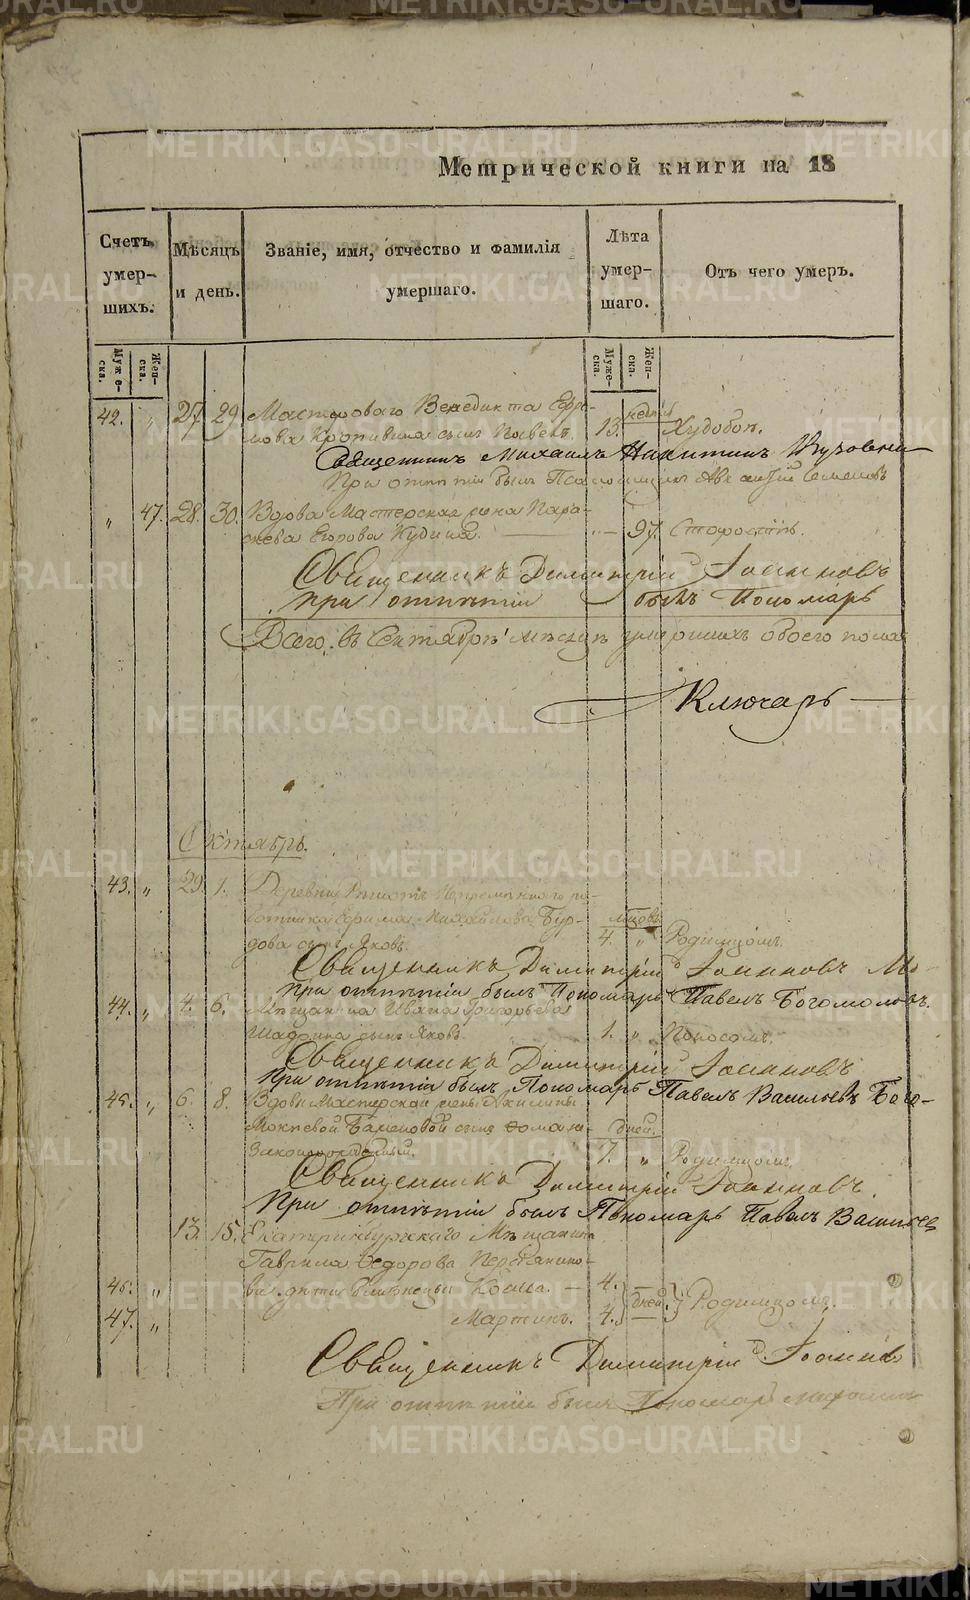 Метрической книги на 18
Счетъ умер-шихъ.
Мѣсяцъ и день.
Званіе, имя, отчество и фамилія умершаго.
Лѣта умер-шаго.
Отъ чего умеръ.
Муже-ска.
Жен-ска.
Муже-ска.
Жен-ска.
42. „ 27 29 Мастероваго Венедикта Ефи- недѣл
мова сынъ Павелъ. 13. Худобой.
Священникъ Михаилъ Никитинъ
При отпѣтіи былъ Семеновъ
„ 47. 28. 30. Вдова Мастерская жена Пара-
скева Егорова Кудина. „ 97. Старостію.
Священникъ Димитрій Іоанновъ
При отпѣтіи былъ Пономарь
Всего въ Сентябрѣ мѣсяцѣ умершихъ обоего пола
Ключарь
Октябрь.
43. „ 29. 1. Деревни Непремѣннаго ра-
ботника Ефима Михайлова Бур- мѣсовъ
дова сынъ Яковъ. 4. „ Родимцомъ.
Священникъ Димитрій Іоанновъ Мо-
При отпѣтіи былъ Пономарь Павелъ Богомоловъ.
44. „ 4. 6. Мѣщанина Ивана Григорьева
Шадрина сынъ Яковъ. 1. „ Поносомъ.
Священникъ Димитрій Іоанновъ
При отпѣтіи былъ Пономарь Павелъ Васильевъ Бого-
45. „ 6. 8. Вдовы Мастерской жены Акилины
Мокѣевой сынъ Фома не- дней.
законнорожденный. 7. „ Родимцомъ.
Священникъ Димитрій Іоанновъ.
При отпѣтіи былъ Пономарь Павелъ Васильев
13. 15. Екатеринбургскаго Мѣщанина
Гаврила Федорова
46. „ ва дѣти близнецы Косма. — 4. —
дней. Родимцомъ.
47. „ Мартинъ. 4. —
Священникъ Димитрій Іоанно
При отпѣтіи былъ Пономарь
METRIKI.GASO-URAL.RU